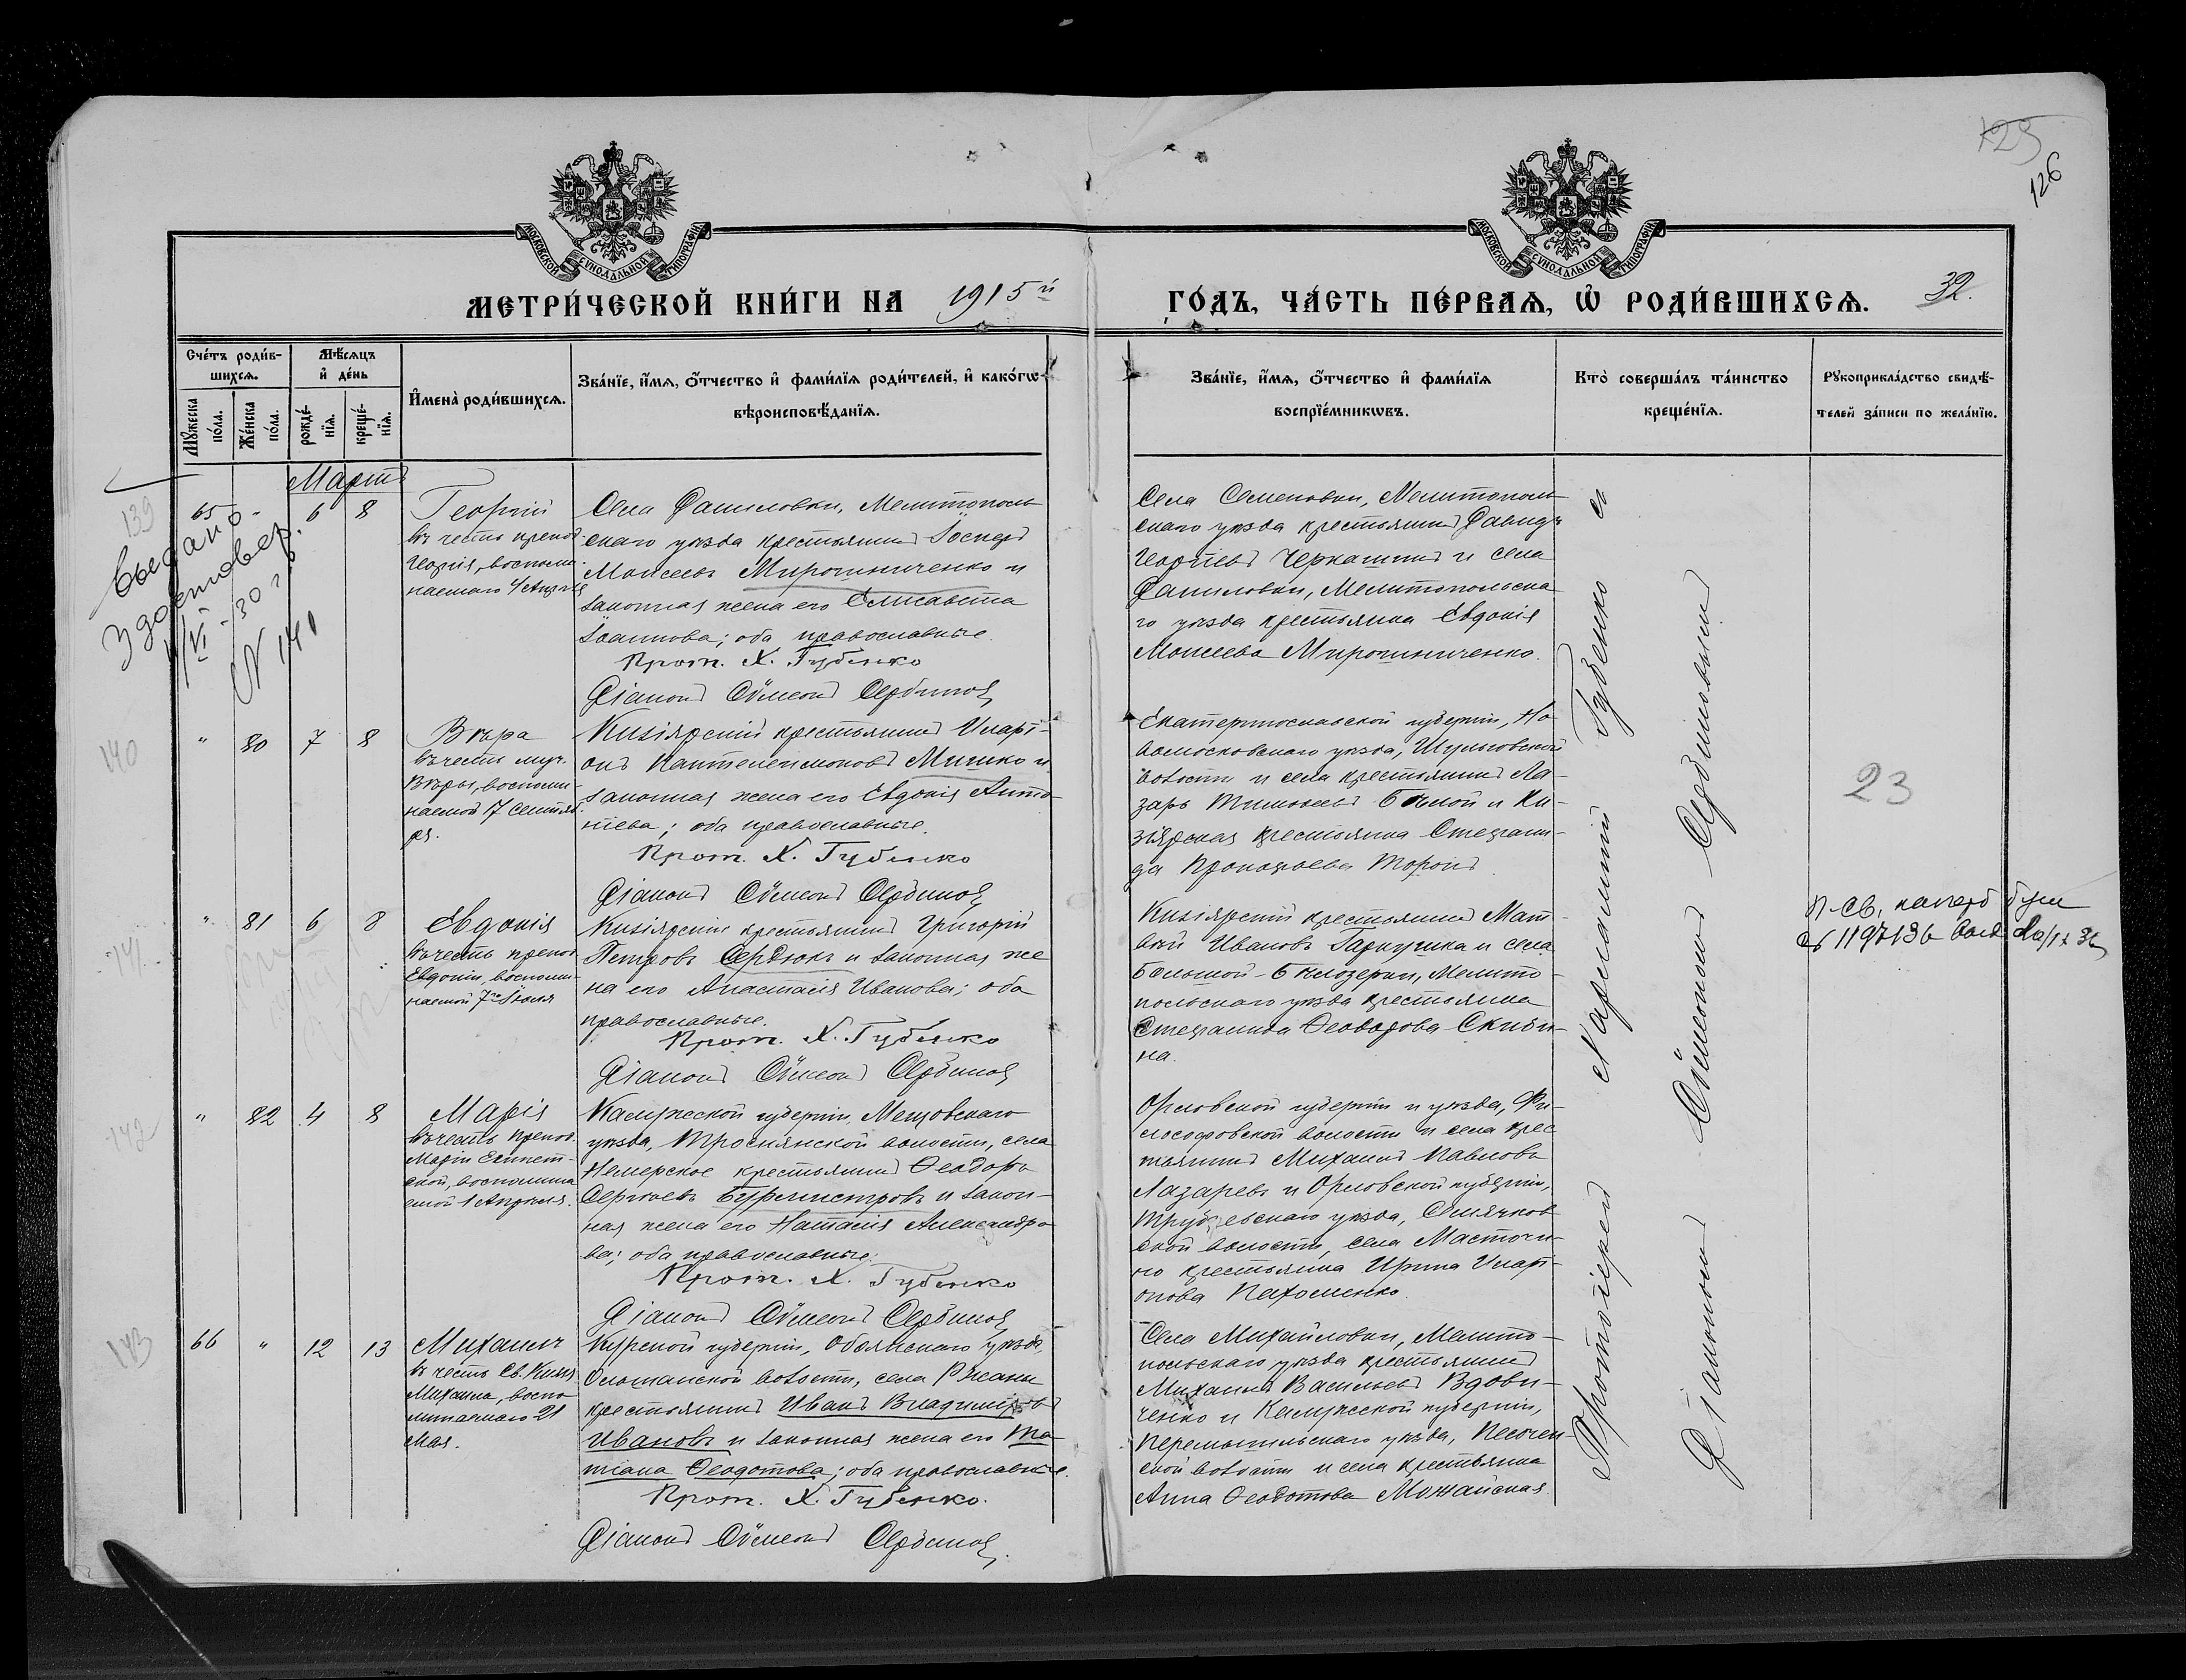 125
126
МОСКОВСКОЙ СУНОДАЛЬНОЙ ТИПОГРАФІИ
МОСКОВСКОЙ СУНОДАЛЬНОЙ ТИПОГРАФІИ
МЕТРИ́ЧЕСКОЙ КНИ́ГИ НА 1915 й
ГО́ДЪ, ЧА́СТЬ ПЕ́РВАѦ, Ѡ РОДИ́ВШИХСѦ. 32.
Сче́тъ роди́в-
шихсѧ.
Мѣ́сѧцъ
и҆ де́нь
Мꙋ́жеска
по́ла.
Же́нска
по́ла.
рожде́-
нїѧ.
креще́-
нїѧ.
И҆мена̀ роди́вшихсѧ.
Зва́нїе, и҆́мѧ, ѻ҆́тчество и҆ фами́лїѧ роди́телей, и҆ како́гѡ
вѣроисповѣ́данїѧ.
Зва́нїе, и҆́мѧ, ѻ҆́тчество и҆ фами́лїѧ
воспрїе́мникѡвъ.
Кто̀ соверша́лъ та́инство
креще́нїѧ.
Рꙋкоприкла́дство свидѣ́-
телей за́писи по жела́нїю.
Мартъ
139
65 - 6 8
Выдано
4/VI - 30 г.
N 141
Георгій
въ честь препод.
Георгія, воспоми-
наемаго 4 Апрѣля
Села Даниловки, Мелитополь
скаго уѣзда крестьянинъ Іосифъ
Моисеевъ Мирошниченко и
законная жена его Елисавета
Іоаннова; оба православные.
Прот. Х. Губенко
Діаконъ Сѵмеонъ Сербинов
Села Семеновки, Мелитополь
скаго уѣзда крестьянинъ Давидъ
Георгіевъ Черкашинъ и села
Даниловки, Мелитопольска
го уѣзда крестьянка Евдокія
Моисеева Мирошниченко.
140
" 80 7 8
Вѣра
въ честь муч.
Вѣры, воспоми-
наемой 17 Сентяб
ря.
Кизіярскій крестьянинъ Иларі-
онъ Пантелеимоновъ Мишко и
законная жена его Евдокія Анто-
ніева; оба православные.
Прот. Х. Губенко
Діаконъ Сѵмеонъ Сербинов
Екатеринославской губерніи, Но
вомосковскаго уѣзда, Шульговской
волости и села крестьянинъ Ла-
зарь Тимофеевъ Бѣлой и Ки-
зіярская крестьянка Стефани-
да Прокофьева Моронъ
23
141
" 81 6 8
Евдокія
въ честь препод
Евдокіи, воспоми-
наемой 7го Іюля
Кизіярскій крестьянинъ Григорій
Петровъ Сердюкъ и законная же
на его Анастасія Иванова; оба
православные.
Прот. Х. Губенко
Діаконъ Сѵмеонъ Сербинов
Кизіярскій крестьянинъ Мат-
вѣй Ивановъ Гаркушка и села
Большой-Бѣлозерки, Мелито-
польскаго уѣзда крестьянка
Стефанида Ѳеодорова Скиби-
на.
142
" 82 4 8
Марія
въ честь препод.
Маріи Египет-
ской, воспомина
емой 1 Апрѣля.
Калужской губерніи, Мещовскаго
уѣзда, Троснянской волости, села
Немерское крестьянинъ Ѳеодоръ
Сергіевъ Бурмистровъ и закон-
ная жена его Наталія Александро
ва; оба православные.
Прот. Х. Губенко
Діаконъ Сѵмеонъ Сербинов
Орловской губерніи и уѣзда, Фи-
лософовской волости и села крес
тьянинъ Михаилъ Павловъ
Лазаревъ и Орловской губерніи,
Трубчевскаго уѣзда,
ской волости, села
го крестьянка Ирина Иларі-
онова Пахоменко.
143
66 " 12 13
Михаилъ
въ честь Св. Князя
Михаила, воспо
минаемаго 21
Мая.
Курской губерніи, Обоянскаго уѣзда,
волости, села Ржавы
крестьянинъ Иванъ Владиміровъ
Ивановъ и законная жена его Та-
тіана Ѳеодотова; оба православные.
Прот. Х. Губенко.
Діаконъ Сѵмеонъ Сербинов
Села Михайловки, Мелито-
польскаго уѣзда крестьянинъ
Михаилъ Васильевъ Вдови-
ченко и Калужской губерніи,
Перемышльскаго уѣзда, Песочен
ской волости и села крестьянка
Анна Ѳеодотова Можайская.
Протоіерей Харлампій Губенко съ
Діакономъ Сѵмеономъ Сербиновымъ